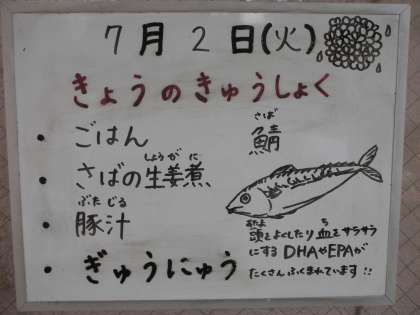 7月2日(火)
きょうのきゅうしょく
• ごはん
• さばの生姜煮
しょうが に
• 豚汁
ぶた じる
• ぎゅうにゅう
さば
鯖
あたま ち
頭をよくしたり血をサラサラ
にするDHAやEPAが
たくさんふくまれています!!